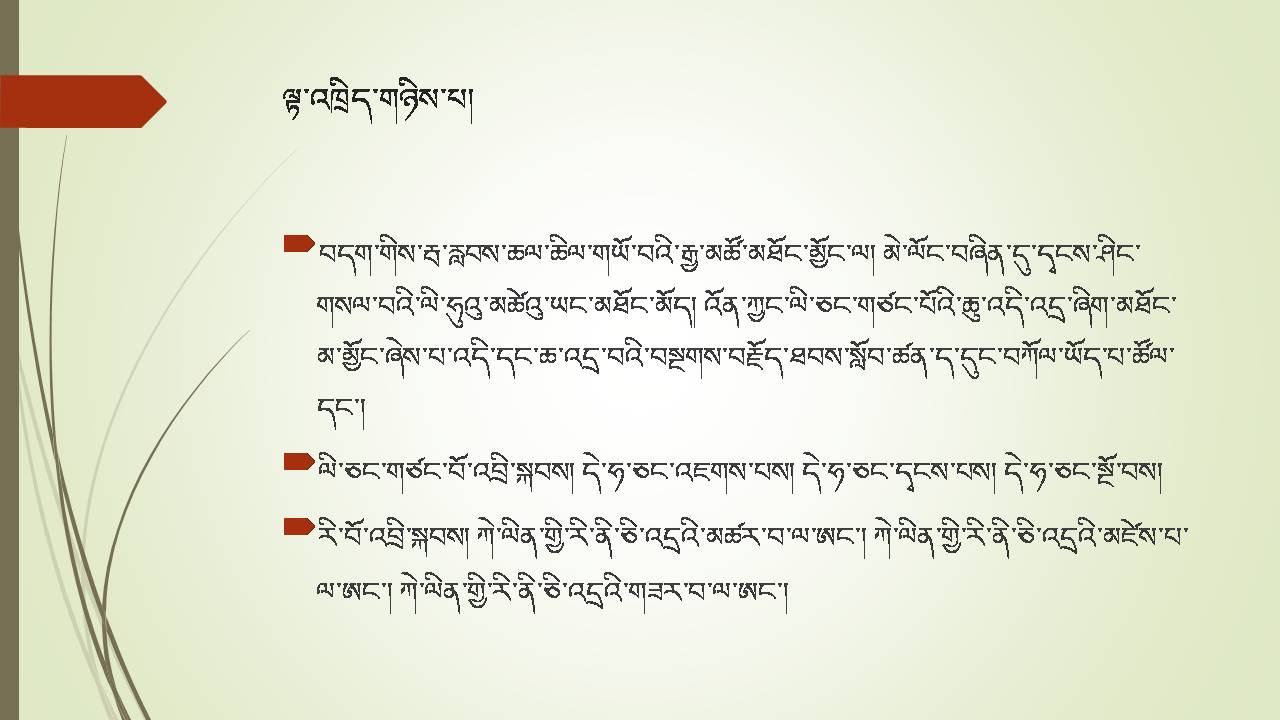 ལྟ་འཁྲིད་གཉིས་པ།
བདག་གིས་རྦ་རླབས་ཆལ་ཆིལ་གཡོ་བའི་རྒྱ་མཚོ་མཐོང་མྱོང་ལ། མེ་ལོང་བཞིན་དུ་དྭངས་ཤིང་
གསལ་བའི་ལི་ཧུའུ་མཚེའུ་ཡང་མཐོང་མོད། འོན་ཀྱང་ལི་ཅང་གཙང་པོའི་ཆུ་འདི་འདྲ་ཞིག་མཐོང་
མ་མྱོང་ཞེས་པ་འདི་དང་ཆ་འདྲ་བའི་བསྔགས་བརྗོད་ཐབས་སློབ་ཚན་ད་དུང་བཀོལ་ཡོད་པ་ཚོལ་
དང་།
ལི་ཅང་གཙང་པོ་འབྲི་སྐབས། དེ་ཧ་ཅང་འཇགས་པས། དེ་ཧ་ཅང་དྭངས་པས། དེ་ཧ་ཅང་སྔོ་བས།
རི་བོ་འབྲི་སྐབས། ཀེ་ལིན་གྱི་རི་ནི་ཅི་འདྲའི་མཚར་བ་ལ་ཨང་། ཀེ་ལིན་གྱི་རི་ནི་ཅི་འདྲའི་མཛེས་པ་
ལ་ཨང་། ཀེ་ལིན་གྱི་རི་ནི་ཅི་འདྲའི་གཟར་བ་ལ་ཨང་།